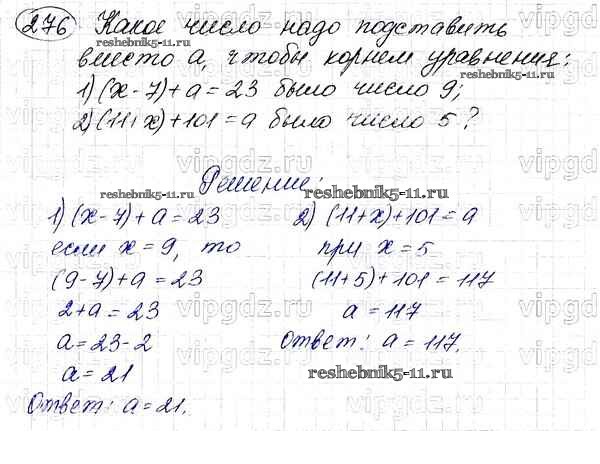 276 Какое число надо подставить
reshebnik5-11.ru
вместо а, чтобы корнем уравнения:
reshebnik5-11.ru
1) (x-7)+a=23 было число 9;
2) (11+x)+101=a было число 5?
Решение:
reshebnik5-11.ru
reshebnik5-11.ru
1) (x-7)+a=23
2) (11+x)+101=a
если x=9, то
при x=5
(9-7)+a=23
(11+5)+101=117
2+a=23
a=117
a=23-2
Ответ: a=117.
a=21
reshebnik5-11.ru
Ответ: a=21.
vipgdz.ru